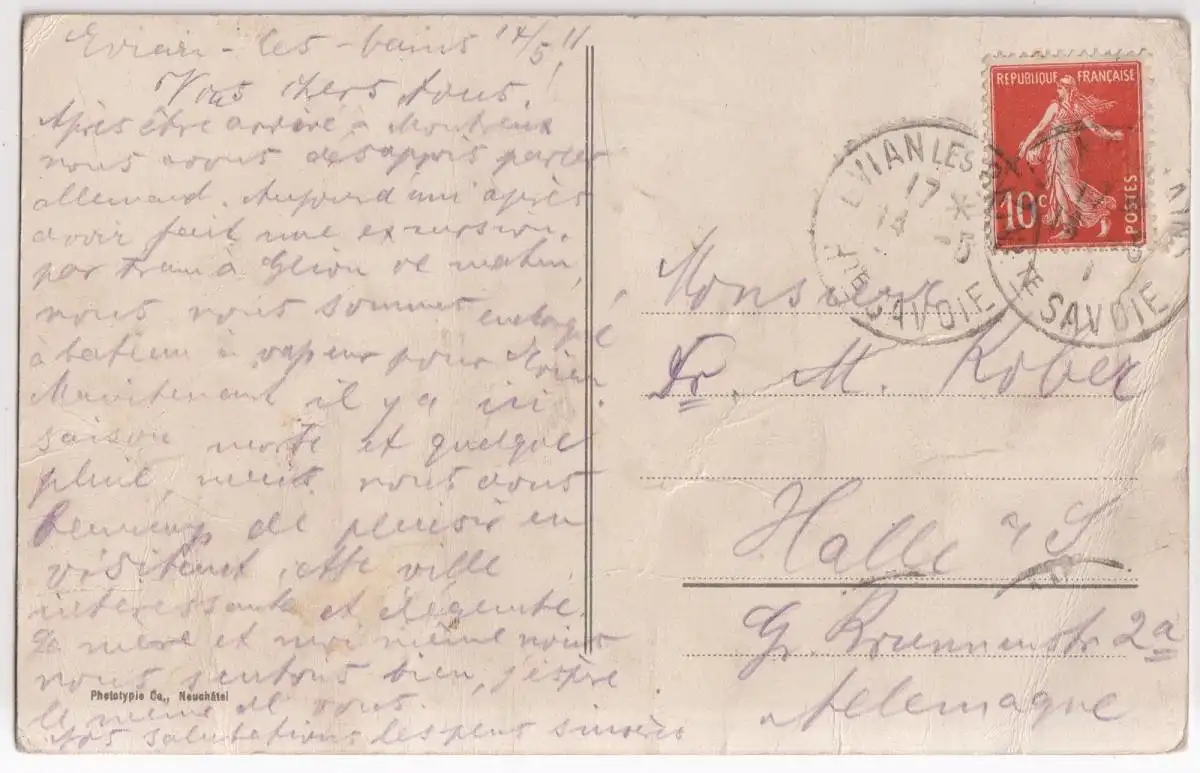 Evian-les-bains 14/5. 11
Vous chers tous,
Après être arrivé à Montreux
nous avons désappris parler
allemand. Aujourd'hui après
avoir fait une excursion,
par tram à Glion ce matin,
nous nous sommes embarqué
à bateau à vapeur pour Evian.
Maintenant il y a ici
saison morte et quelque
pluie, mais nous avons
beaucoup de plaisir en
visitant cette ville
intéressante et élégante.
La mère et moi même nous
nous sentons bien, j'espère
le même de vous.
Nos salutations les plus sincères
Phototypie Co., Neuchâtel
REPUBLIQUE FRANÇAISE
10c
POSTES
EVIAN LES
17 *
14 -5
HTE SAVOIE
SAVOIE
Monsieur
Dr. M. Kober
Halle a/S
Gr. Brunnenstr 2a
Allemagne